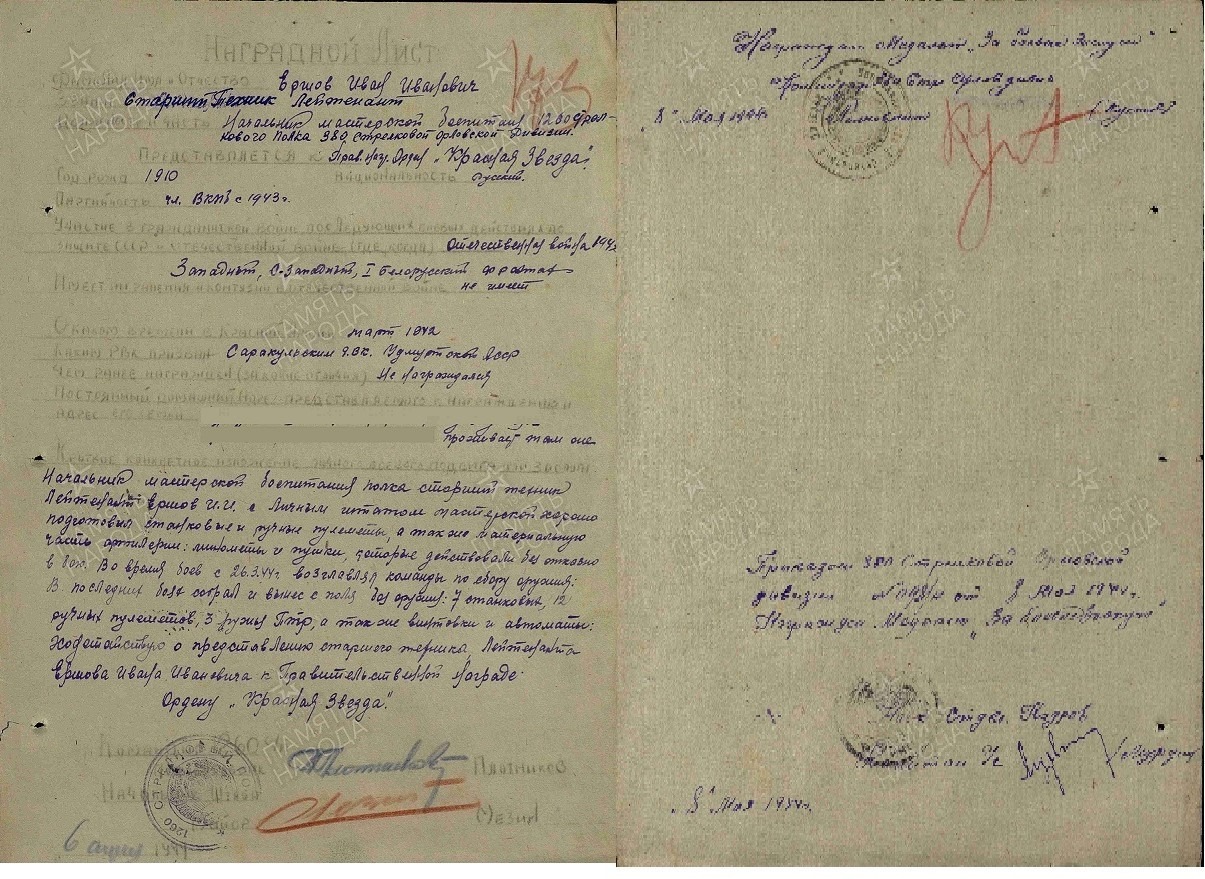 Наградной Лист
Фамилия Имя и Отчество Ершов Иван Иванович
Старший Техник Лейтенант
Начальник мастерской боепитания 1260 стрел-
кового полка 380 стрелковой орловской дивизии.
Представляется к Прав. наг. Орден „Красная Звезда".
Год рожд 1910 Национальность русский.
Партийность чл. ВКПб с 1943 г.
Участие в гражданской войне последующих боевых действиях по
защите СССР и отечественной войне (где, когда) отечественная война
Западный, С-Западный, I Белорусский фронтах
не имеет
С какого времени в Красной март 1942
Каким РВК призван Саракульским РВК. Удмуртской АССР
Чем ранее награжден (за какие отличия) Не награждался
Постоянный домашний адрес представляемого к награждению и
адрес его семьи
проживает там же
Краткое конкретное изложение личного боевого подвига или заслуг
Начальник мастерской боепитания полка старший техник
Лейтенант Ершов И.И. с личным штатом мастерской хорошо
подготовил станковые и ручные пулеметы, а также материальную
часть артилерии: минометы и пушки, которые действовали без отказно
в бою. Во время боев с 26.3.44 г. возглавлял команды по сбору оружия:
В последних боях собрал и вынес с поля боя оружия: 7 станковых, 12
ручных пулеметов, 3 ружья ПТР, а также винтовки и автоматы:
Ходотайствую о представлению старшего техника Лейтенанта
Ершова Ивана Ивановича к Правительственной награде
Ордену „Красная Звезда".
Плотников
Начальник Штаба
Майор Мезин
1260 СТРЕЛКОВЫЙ
6 апреля 1944
Награждаю Медалью „За боевые Заслуги"
Командир 380 Стр Орлов дивизии
„8" Мая 1944 г. Полковник
Приказом 380 Стрелковой Орловской
дивизии от 8 Мая 1944 г.
Награжден Медалью „За боевые заслуги"
Капитан
„8" Мая 1944 г.
ПАМЯТЬ НАРОДА